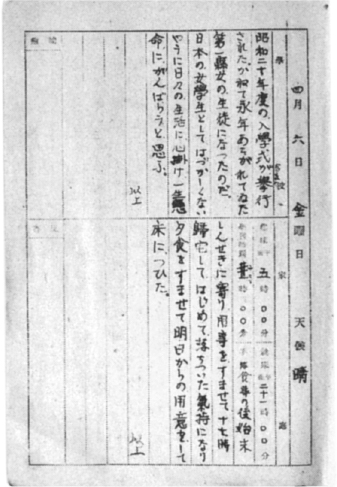 四月六日 金曜日 天候 晴
學校
昭和二十年度の、入學式が擧行
された。かねて永年あこがれてゐた
第一縣女の生徒になったのだ。
日本の女學生としてはづかしくない
やうに日々の生活に心掛け一生懸
命に、がんばらうと思ふ。
以上
家庭
起床 五時〇〇分 就床 二十一時〇〇分
時〇〇分 食事の後始末
しんせきに寄り用事をすませて十七時
歸宅して、はじめて落ちついた氣持になり
夕食をすませて明日からの用意をして
床についた。
以上